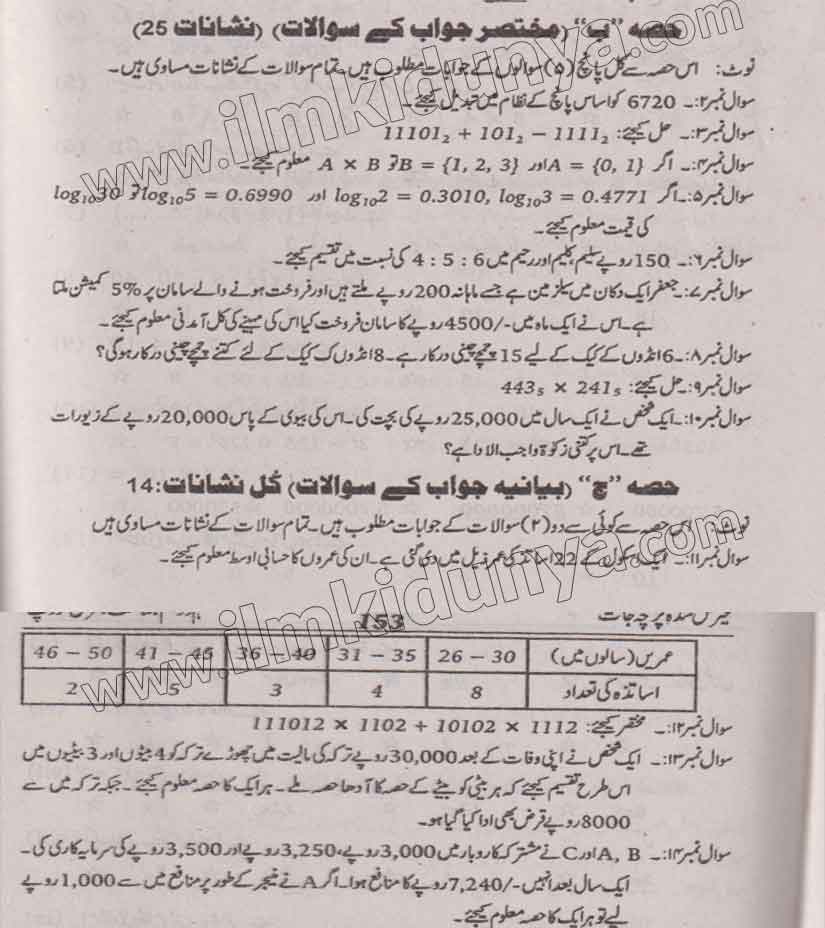 حصہ ”ب“ (مختصر جواب کے سوالات) (نشانات 25)
نوٹ: اس حصہ سے کل پانچ (۵) سوالوں کے جوابات مطلوب ہیں۔ تمام سوالات کے نشانات مساوی ہیں۔
سوال نمبر۲:۔ 6720 کو اساس پانچ کے نظام میں تبدیل کیجئے۔
سوال نمبر۳:۔ حل کیجئے: 11101₂ + 101₂ − 1111₂
سوال نمبر۴:۔ اگر A = {0, 1} اور B = {1, 2, 3} تو A × B معلوم کیجئے۔
سوال نمبر۵:۔ اگر log₁₀2 = 0.3010, log₁₀3 = 0.4771 اور log₁₀5 = 0.6990 تو log₁₀30
کی قیمت معلوم کیجئے۔
سوال نمبر۶:۔ 150 روپے سلیم، کلیم اور رحیم میں 4 : 5 : 6 کی نسبت میں تقسیم کیجئے۔
سوال نمبر۷:۔ جعفر ایک دکان میں سیلز مین ہے جسے ماہانہ 200 روپے ملتے ہیں اور فروخت ہونے والے سامان پر 5% کمیشن ملتا
ہے۔ اس نے ایک ماہ میں 4500/- روپے کا سامان فروخت کیا اس کی مہینے کی کل آمدنی معلوم کیجئے۔
سوال نمبر۸:۔ 6 انڈوں کے کیک کے لیے 15 چمچے چینی درکار ہے۔ 8 انڈوں کے کیک کے لئے کتنے چمچے چینی درکار ہوگی؟
سوال نمبر۹:۔ حل کیجئے: 443₅ × 241₅
سوال نمبر۱۰:۔ ایک شخص نے ایک سال میں 25,000 روپے کی بچت کی۔ اس کی بیوی کے پاس 20,000 روپے کے زیورات
تھے۔ اس پر کتنی زکوٰۃ واجب الادا ہے؟
حصہ ”ج“ (بیانیہ جواب کے سوالات) کُل نشانات: 14
نوٹ: اس حصہ سے کوئی سے دو (۲) سوالات کے جوابات مطلوب ہیں۔ تمام سوالات کے نشانات مساوی ہیں
سوال نمبر۱۱:۔ ایک اسکول کے 22 اساتذہ کی عمر ذیل میں دی گئی ہے۔ ان کی عمروں کا حسابی اوسط معلوم کیجئے۔
153
عمریں (سالوں میں) 26 – 30 31 – 35 36 – 40 41 – 45 46 – 50
اساتذہ کی تعداد 8 4 3 5 2
سوال نمبر۱۲:۔ مختصر کیجئے: 111012 × 1102 + 10102 × 1112
سوال نمبر۱۳:۔ ایک شخص نے اپنی وفات کے بعد 30,000 روپے ترکہ کی مالیت میں چھوڑے ترکہ کو 4 بیٹوں اور 3 بیٹیوں میں
اس طرح تقسیم کیجئے کہ ہر بیٹی کو بیٹے کے حصہ کا آدھا حصہ ملے۔ ہر ایک کا حصہ معلوم کیجئے۔ جبکہ ترکہ میں سے
8000 روپے قرض بھی ادا کیا گیا ہو۔
سوال نمبر۱۴:۔ A, B اور C نے مشترکہ کاروبار میں 3,000 روپے، 3,250 روپے اور 3,500 روپے کی سرمایہ کاری کی۔
ایک سال بعد انہیں 7,240/- روپے کا منافع ہوا۔ اگر A نے منیجر کے طور پر منافع میں سے 1,000 روپے
لیے تو ہر ایک کا حصہ معلوم کیجئے۔
www.ilmkidunya.com
www.ilmkidunya.com